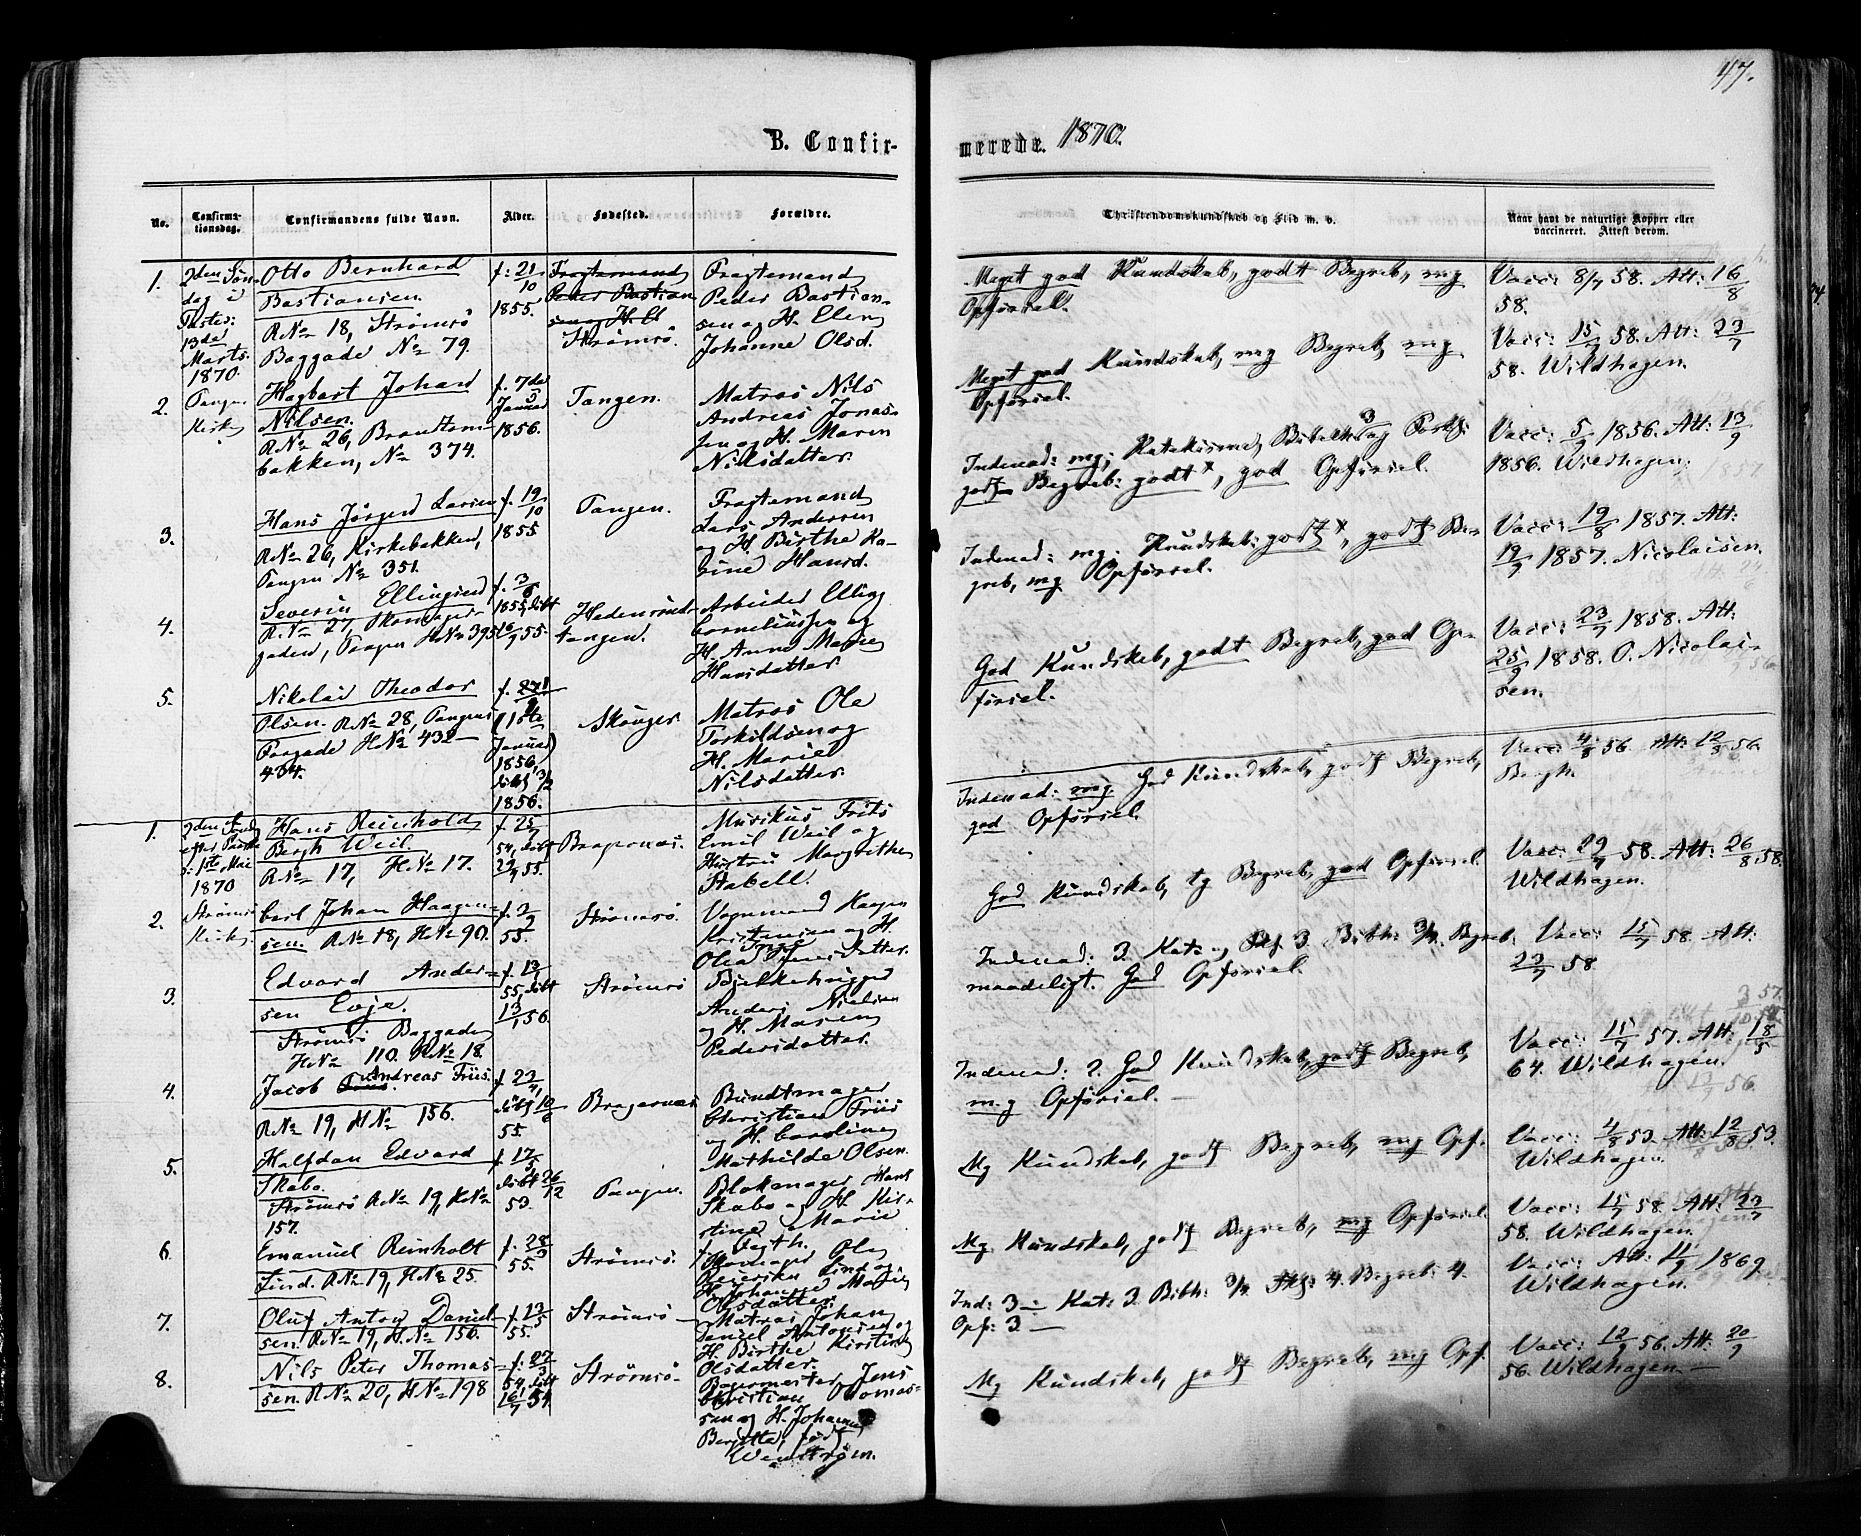 47.
B. Confir-
merede. 1870.
No.
Confirma-
tionsdag.
Confirmandens fulde Navn.
Alder.
Fødested.
Forældre.
Christendomskundskab og Flid m. v.
Naar havt de naturlige Kopper eller
vaccineret. Attest derom.
1.
2den Søn-
dag i
Faste:
13de
Marts.
1870.
Tangen
Kirke
Otto Bernhard
Bastiansen.
R.No 18, Strømsø
Baggade No 79.
f: 21/10
1855.
Fragtemand
Peder Bastian
sen og H. El
Strømsø.
Fragtemand
Peder Bastian-
sen og H. Elen
Johanne Olsd.
Meget god Kundskab, godt Begreb, mg
Opførsel.
Vacc: 8/7 58. Att: 16/8
58.
2.
Hagbart Johan
Nilsen.
R.No 26, Brantem-
bakken, No 374.
f. 7de
Januar
1856.
Tangen.
Matros Nils
Andreas Jonas-
sen og H. Maren
Nilsdatter.
Meget god Kundskab, mg Begreb, mg
Opførsel.
Vacc: 15/7 58. Att: 23/7
58. Wildhagen.
3.
Hans Jørgen Larsen
R.No 26, Kirkebakken,
Tangen No 351.
f. 19/10
1855
Tangen.
Fragtemand
Lars Andersen
og H. Birthe Ka-
rine Hansd.
Indenad: mg; Katekisme, Bibelh: og Forkl: 3
godt Begreb: godt x, god Opførsel.
Vacc: 5/9 1856. Att: 13/9
1856. Wildhagen.
4.
Severin Ellingsen
R.No 27, Skomager-
gaden, Tangen H.No 395
f. 3/6
1855, døbt
16/9 55.
Hedensrud-
tangen.
Arbeider Elling
Corneliussen og
H. Anne Marie
Hansdatter.
Indenad: mg; Kundskab: godt x, godt Be-
greb, mg Opførsel.
Vacc: 19/8 1857. Att:
19/9 1857. Nicolaisen.
5.
Nikolai Theodor
Olsen. R.No 28, Tangens
Torgade H.No 432-
434.
(1ste
Januar)
1856,
døbt 3/2
1856.
Skouger.
Matros Ole
Torkildsen og
H. Marie
Nilsdatter.
God Kundskab, godt Begreb, god Op-
førsel.
Vacc: 23/7 1858. Att:
25/9 1858. O. Nicolai-
sen.
1.
2den Sønd
efter Paaske
: 1ste Mai
1870
Strømsø
Kirke.
Hans Reinhold
Bergh Weil.
R.No 17, H.No 17.
f. 25/7
54, døbt
29/4 55.
Bragernæs.
Musikus Frits
Emil Weil og
Hustru Margrethe
Stabell.
Indenad: mg. God Kundskab, godt Begreb,
god Opførsel.
Vacc: 4/8 56. Att: 12/8 56.
Bergh.
2.
Carl Johan Haagen-
sen. R.No 18, H.No 90.
f. 3/9
55.
Strømsø.
Vognmand Haagen
Kristensen og H.
Olea Jensdatter.
God Kundskab, tg Begreb, god Opførsel.
Vacc: 29/7 58. Att: 26/8 58.
Wildhagen.
3.
Edvard Ander-
sen Evje.
Strømsø Baggade
H.No 110. R.No 18.
55, døbt
13/1 56.
Strømsø
Bjelkehugger
Anders Nielsen
og H. Maren
Pedersdatter.
Indenad: 3. Kat: og Fkl: 3. Bibh: 3/4. Begreb:
maadeligt. God Opførsel.
Vacc: 15/7 58. Att:
23/7 58
4.
Jacob Andreas Friis.
R.No 19, H.No 156.
f. 23/4,
døbt 10/6
55.
Bragernæs
Bundtmager
Christian Friis
og H. Caroline
Mathilde Olsen.
Indenad: 2. God Kundskab, godt Begreb,
mg Opførsel.
Vacc: 15/7 57. Att: 18/5
64. Wildhagen.
5.
Halfdan Edvard
Skabo.
Strømsø R.No 19, H.No
157.
f. 17/5
døbt 26/12
53.
Tangen.
Blokmager Hans
Skabo og H. Kir-
stine Marie
f. Vegth.
Mg Kundskab, godt Begreb, mg Opf.
Vacc: 4/8 53. Att: 12/8 53.
Wildhagen.
6.
Emanuel Reinholt
Lund. R.No 19, H.No 25.
f. 28/9
55.
Strømsø.
Skomager Ole
Lund og
H. Johanne Marie
Olsdatter.
Mg Kundskab, godt Begreb, mg Opførsel.
Vacc: 15/7 58. Att: 23/7
58. Wildhagen.
7.
Oluf Anton Daniel-
sen. R.No 19, H.No 156.
f. 13/5
55.
Strømsø
Matros Johan
Daniel Antonsen og
H. Birthe Kirstine
Olsdatter.
Ind: 3 Kat: 3. Bibh: 3/4 Fkl: 4. Begreb: 4.
Opf: 3
Vacc: Att: 11/9 1869
Wildhagen.
8.
Nils Peter Thomas-
sen. R.No 20, H.No 198
f. 27/3
54, døbt
16/7 54
Strømsø
Bagermester Jens
Christian Thomas-
sen og H. Johanne
Bergitta, født
Wenstrøm.
Mg Kundskab, godt Begreb, mg Opf.
Vacc: 12/9 56. Att: 20/9
56. Wildhagen.